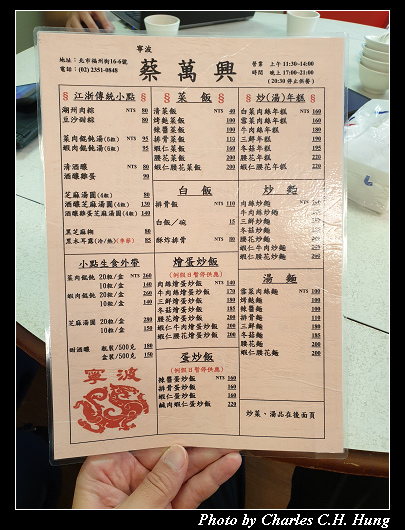 寧波
蔡萬興
地址：北市福州街16-6號
電話：(02) 2351-0848
營業 上午 11:30~14:00
時間 晚上 17:00~21:00
(20:30 停止供餐)
§ 江浙傳統小點 §
湖州肉粽 NT$ 80
豆沙甜粽 80
菜肉餛飩湯(6粒) NT$ 95
蝦肉餛飩湯(6粒) 95
清酒釀 NT$ 80
酒釀雞蛋 90
芝麻湯圓(4粒) 80
酒釀芝麻湯圓(4粒) 130
酒釀雞蛋芝麻湯圓(4粒) 140
黑芝麻糊 80
黑木耳露(冷/熱)(季節) 85
小點生食外帶
菜肉餛飩 20粒/盒 NT$ 260
10粒/盒 140
蝦肉餛飩 20粒/盒 260
10粒/盒 140
芝麻湯圓 20粒/盒 280
10粒/盒 150
甜酒釀 瓶裝/500克 180
盒裝/500克 150
寧波
§ 菜飯 §
清菜飯 NT$ 40
烤麩菜飯 100
辣醬菜飯 100
排骨菜飯 110
蝦仁菜飯 160
腰花菜飯 200
蝦仁腰花菜飯 200
白飯
排骨飯 NT$ 110
白飯/碗 15
酥炸排骨 NT$ 80
燴蛋炒飯
(例假日暫停供應)
肉絲燴蛋炒飯 NT$ 140
牛肉絲燴蛋炒飯 170
三鮮燴蛋炒飯 180
冬菇燴蛋炒飯 185
腰花燴蛋炒飯 200
蝦仁牛肉燴蛋炒飯 200
蝦仁腰花燴蛋炒飯 200
蛋炒飯
(例假日暫停供應)
辣醬蛋炒飯 NT$ 160
排骨蛋炒飯 160
蝦仁蛋炒飯 160
鹹肉蝦仁蛋炒飯 220
§ 炒(湯)年糕 §
白菜肉絲年糕 NT$ 160
雪菜肉絲年糕 160
牛肉絲年糕 180
三鮮年糕 190
冬菇年糕 195
腰花年糕 220
蝦仁牛肉年糕 220
蝦仁腰花年糕 220
炒麵
肉絲炒麵
牛肉絲炒麵
三鮮炒麵
冬菇炒麵
腰花炒麵
蝦仁牛肉炒麵
蝦仁腰花炒麵
湯麵
雪菜肉絲麵 NT$ 100
烤麩麵 100
辣醬麵 100
排骨麵 110
三鮮麵
冬菇麵
腰花麵 200
蝦仁牛肉麵 200
蝦仁腰花麵 200
炒菜、湯品在後面頁
Photo by Charles C.H. Hung